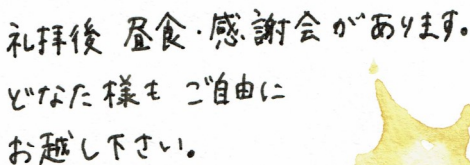 礼拝後 昼食・感謝会があります。
どなた様も ご自由に
お越し下さい。